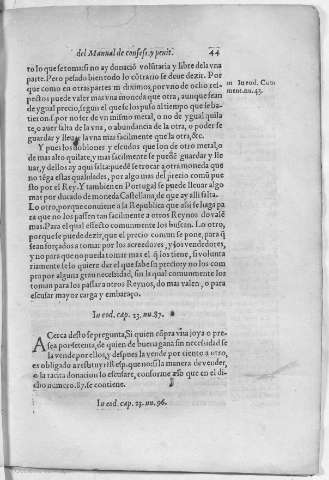 del Manual de confess. y penit. 44
to lo que se toma: si no ay donació volũtaria y libre de la vna
parte. Pero pesado bien todo lo cõtrario se deue dezir. Por
que como en otras partes m diximos, por vno de ocho res
pectos puede valer mas vna moneda que otra, aunque sean
de ygual precio, segun el que se les puso al tiempo que se ba-
tieron. s. por no ser de vn mismo metal, o no de ygual quila
te, o auer falta de vna, o abundancia de la otra, o poder se
guardar y lleuar la vna mas facilmente que la otra, &c.
m In eod. Com
ment. nu. 43.
Y pues los doblones y escudos que son de otro metal, o
de mas alto quilate, y mas facilmente se puedẽ guardar y lle
uar, y dellos ay aqui falta: puede se trocar a otra moneda que
no tẽga estas qualidades, por algo mas del precio comũ pue
sto por el Rey. Y tambien en Portugal se puede lleuar algo
mas por ducado de moneda Castellana, de que ay alli falta.
Lo otro, porque conuiene a la Republica que assi se haga pa
ra que no los passen tan facilmente a otros Reynos do valẽ
mas. Para el qual effecto comunmente los buscan. Lo otro,
porque se puede dezir, que el precio comun se pone, para q̃
sean forçados a tomar por los acreedores, y los vendedores,
y no para que no pueda tomar mas el q̃ los tiene, si volunta
riamente se lo quiere dar el que sabe su precio: y no los com
pro por alguna gran necessidad, sin la qual comunmente los
toman para los passar a otros Reynos, do mas valen, o para
escusar mayor carga y embaraço.
In eod. cap. 23. nu. 87.
A Cerca desto se pregunta, Si quien cõpra vna joya o pre-
sea por setenta, de quien de buena gana sin necessidad se
la vende por ellos, y despues la vende por ciento a otro,
es obligado a restituyr: ã resp. que no: si la manera de vender,
o la tacita donacion lo escusare, conforme a lo que en el di
cho numero. 87. se contiene.
In eod. cap. 23. nu. 96.